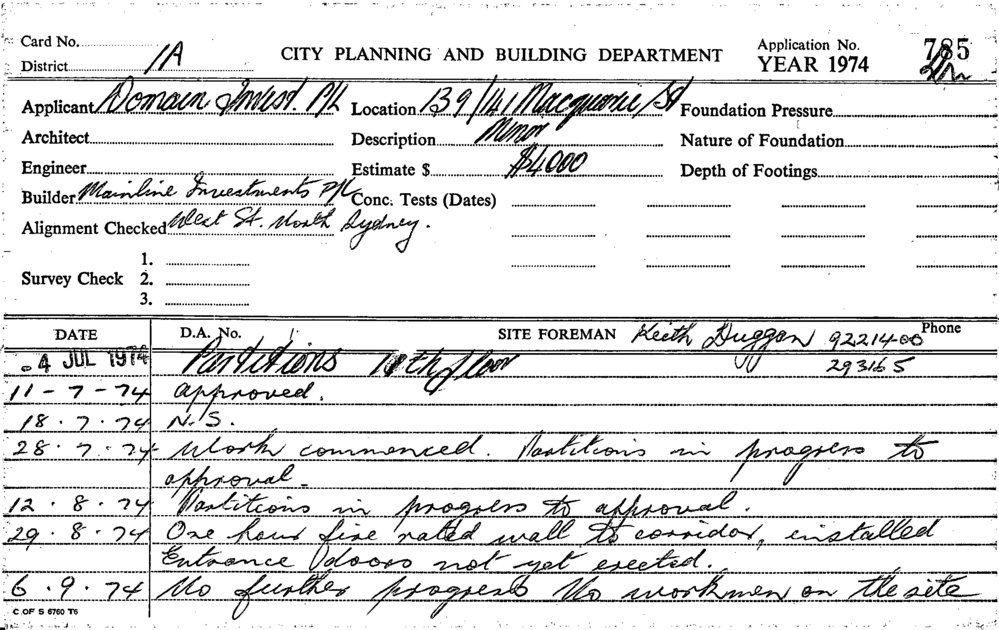 Card No.
District 1A
CITY PLANNING AND BUILDING DEPARTMENT
Application No. 785
YEAR 1974
Applicant Domain Invest. P/L Location 139/141 Macquarie St Foundation Pressure
Architect Description Minor Nature of Foundation
Engineer Estimate $ $4000 Depth of Footings
Builder Mainline Investments P/L Conc. Tests (Dates)
Alignment Checked West St. North Sydney.
1.
Survey Check 2.
3.
DATE D.A. No. SITE FOREMAN Keith Duggan 9221400 Phone
4 JUL 1974 Partitions floor 293165
11-7-74 approved.
18.7.74 N.S.
28.7.74 Work commenced. Partitions in progress to
approval.
12.8.74 Partitions in progress to approval.
29.8.74 One hour fire rated wall to corridor, installed
Entrance doors not yet erected.
6.9.74 No further progress No workmen on the site
C OF S 6760 T6